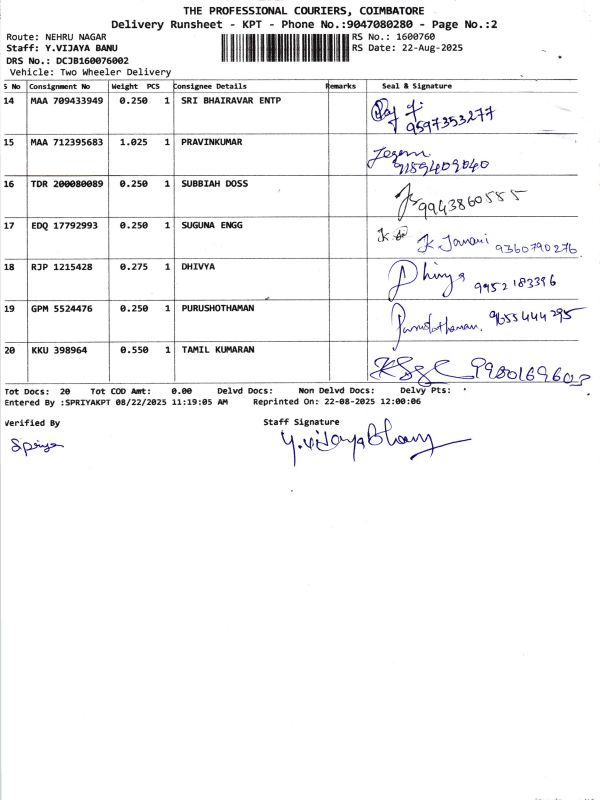 THE PROFESSIONAL COURIERS, COIMBATORE
Delivery Runsheet - KPT - Phone No.:9047080280 - Page No.:2
Route: NEHRU NAGAR RS No.: 1600760
Staff: Y.VIJAYA BANU RS Date: 22-Aug-2025
DRS No.: DCJB160076002
Vehicle: Two Wheeler Delivery
S No Consignment No Weight PCS Consignee Details Remarks Seal & Signature
14 MAA 709433949 0.250 1 SRI BHAIRAVAR ENTP
9597353277
15 MAA 712395683 1.025 1 PRAVINKUMAR
9159409040
16 TDR 200080089 0.250 1 SUBBIAH DOSS
9943860555
17 EDQ 17792993 0.250 1 SUGUNA ENGG K Janani 9360790276
18 RJP 1215428 0.275 1 DHIVYA Dhivya 9952183396
19 GPM 5524476 0.250 1 PURUSHOTHAMAN Purushothaman. 9655444295
20 KKU 398964 0.550 1 TAMIL KUMARAN
Tot Docs: 20 Tot COD Amt: 0.00 Delvd Docs: Non Delvd Docs: Delvy Pts:
Entered By :SPRIYAKPT 08/22/2025 11:19:05 AM Reprinted On: 22-08-2025 12:00:06
Verified By Staff Signature
Spriya Y.VijayaBhanu